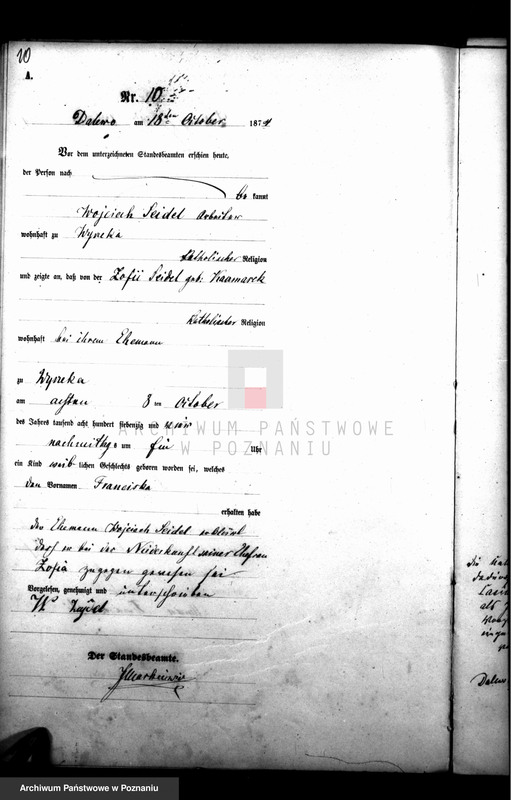 10
A.
Nr. 10
Dalewo am 18ten October 1874
Vor dem unterzeichneten Standesbeamten erschien heute,
der Person nach
be kannt
Wojciech Seidel Arbeiter
wohnhaft zu Wyrzeka
katholischer Religion
und zeigte an, daß von der Zofii Seidel geb.
katholischer Religion
wohnhaft bei ihrem Ehemann
zu Wyrzeka
am achten 8 ten October
des Jahres tausend acht hundert siebenzig und vier
nachmittags um Uhr
ein Kind weib lichen Geschlechts geboren worden sei, welches
den Vornamen Franciska
erhalten habe
der Ehemann Wojciech Seidel erklärt
daß er bei der Niederkunft seiner Ehefrau
Zofia zugegen gewesen sei
Vorgelesen, genehmigt und unterschrieben
Der Standesbeamte.
ARCHIWUM PAŃSTWOWE
W POZNANIU
Dalewo
Archiwum Państwowe w Poznaniu